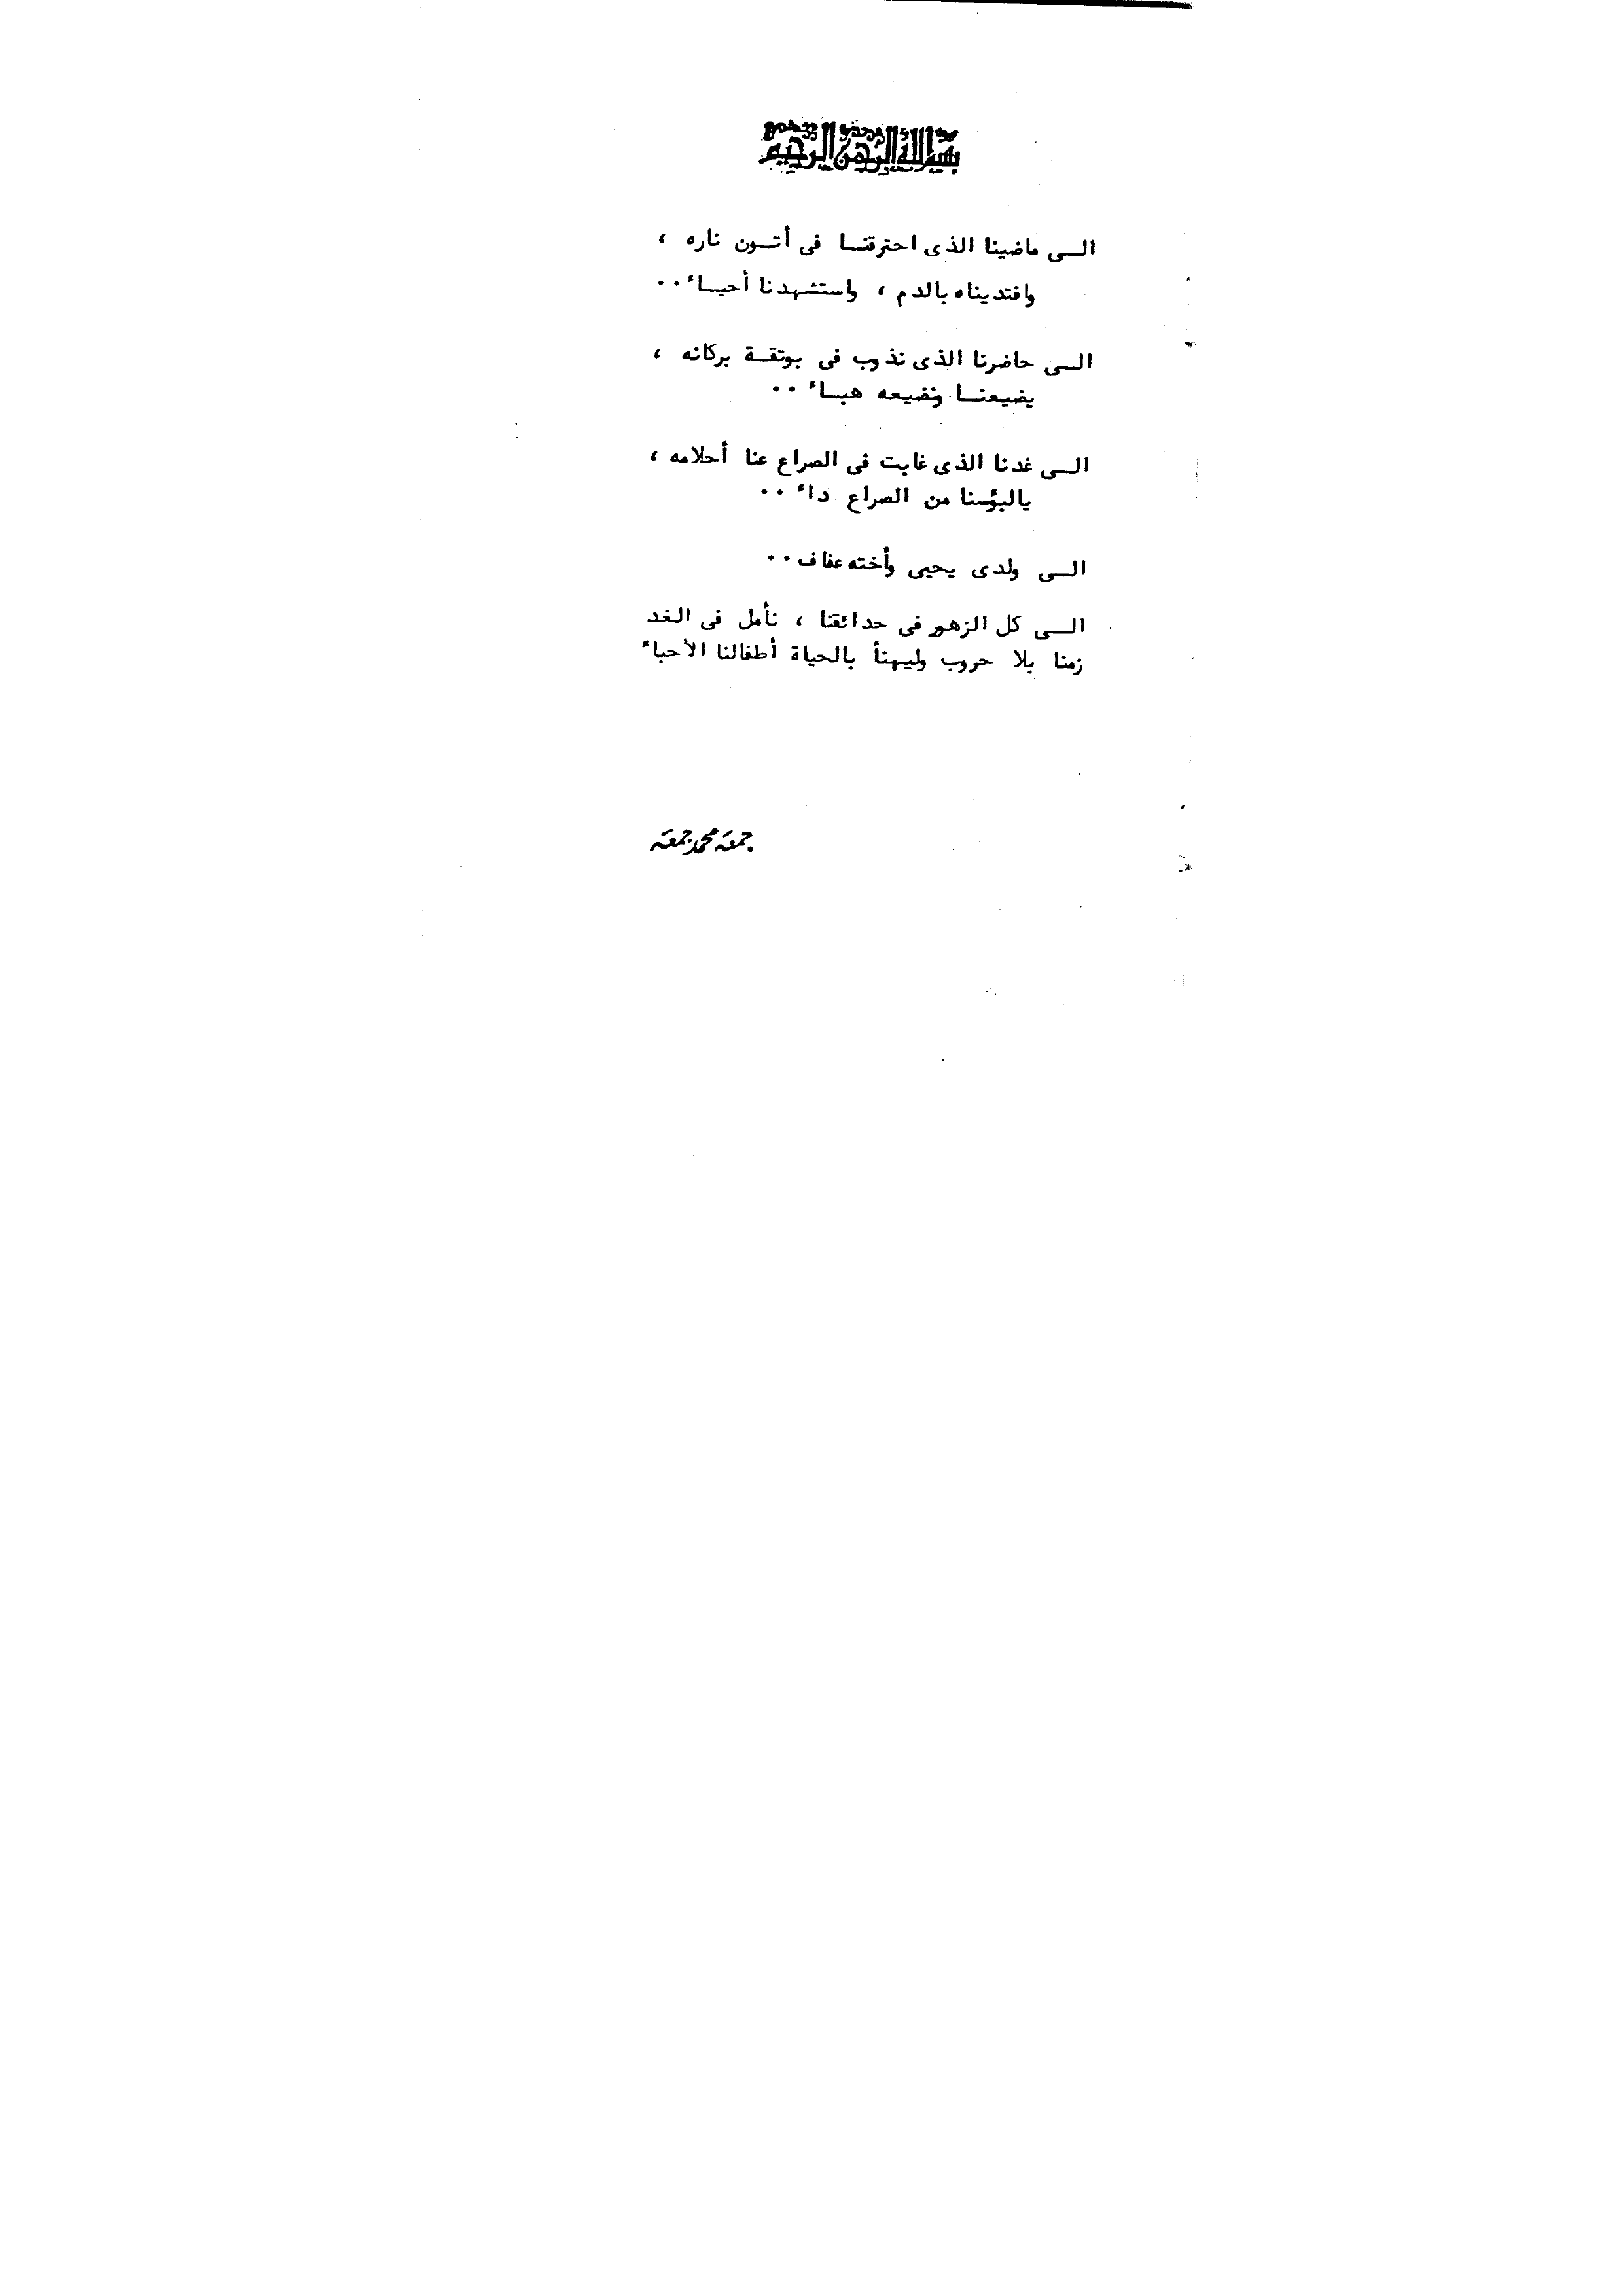 بسم الله الرحمن الرحيم
الـى ماضينا الذى احترقنـا فى أتـون ناره ،
وافتديناه بالدم ، واستشهدنا أحيـاء ..
الـى حاضرنا الذى نذوب فى بوتقـة بركانه ،
يضيعنـا ونضيعه هبـاء ..
الـى غدنا الذى غابت فى الصراع عنا أحلامه ،
يالبؤسنا من الصراع داء ..
الـى ولدى يحيى وأخته عفاف ..
الـى كل الزهور فى حدائقنا ، نأمل فى الغد
زمنا بلا حروب وليهنأ بالحياة أطفالنا الأحباء
جمعه محمد جمعه